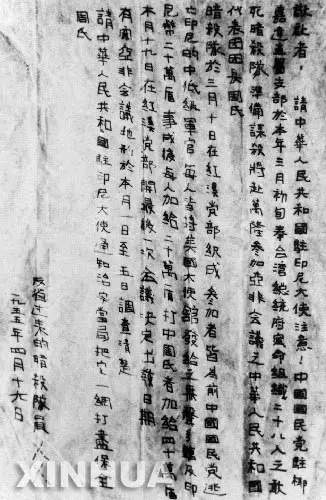 敬啟者： 請中華人民共和國駐印尼大使注意！中國國民党駐椰
嘉達直屬支部於本年三月初旬奉台灣總統府密命組織二十八人之敢
死暗殺隊準備謀殺將赴萬隆參加亞非會議之中華人民共和國
代表团团長周氏
暗殺隊於三月十日在紅溪党部組成 參加者皆為前中國國民党逃
亡印尼的中低級軍官 每人皆將美國大使館發給之無聲手鎗及印
尼幣二十萬盾 事成後每人加給二十萬盾 打中周氏者加給四十萬盾
本月十九日在紅溪党部開最後一次会議決定出發日期
有関亞非会議地形於本月一日至五日調查清楚
請中華人民共和國駐印尼大使通知治安當局把它一網打盡保全
周氏
的暗殺隊員一人
一九五五年四月十 日
XINHUA